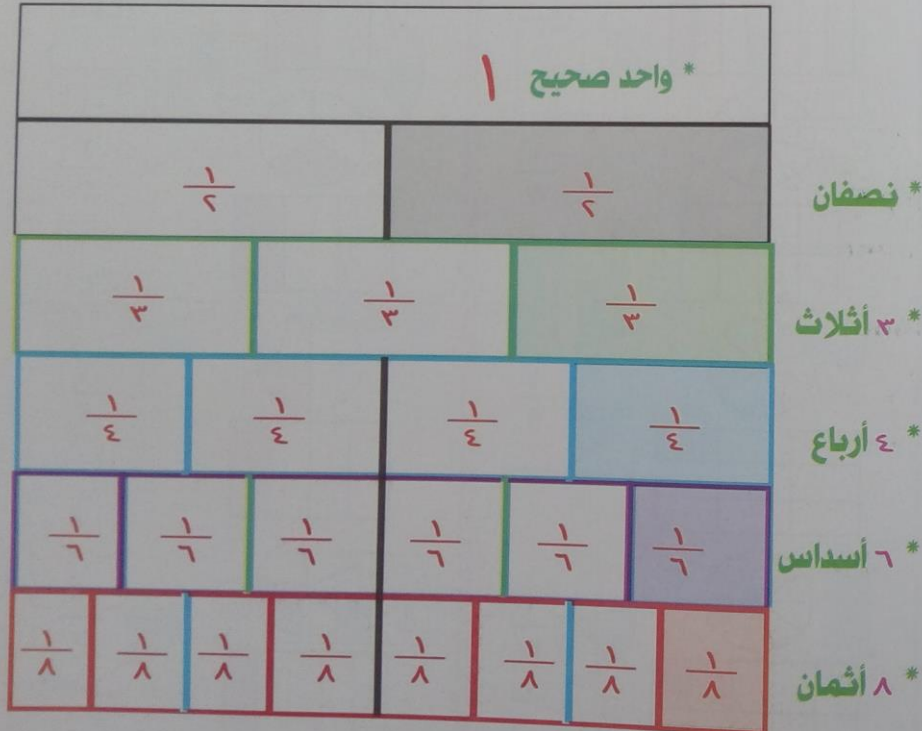 * واحد صحيح ١
* نصفان ١/٢ ١/٢
* ٣ أثلاث ١/٣ ١/٣ ١/٣
* ٤ أرباع ١/٤ ١/٤ ١/٤ ١/٤
* ٦ أسداس ١/٦ ١/٦ ١/٦ ١/٦ ١/٦ ١/٦
* ٨ أثمان ١/٨ ١/٨ ١/٨ ١/٨ ١/٨ ١/٨ ١/٨ ١/٨